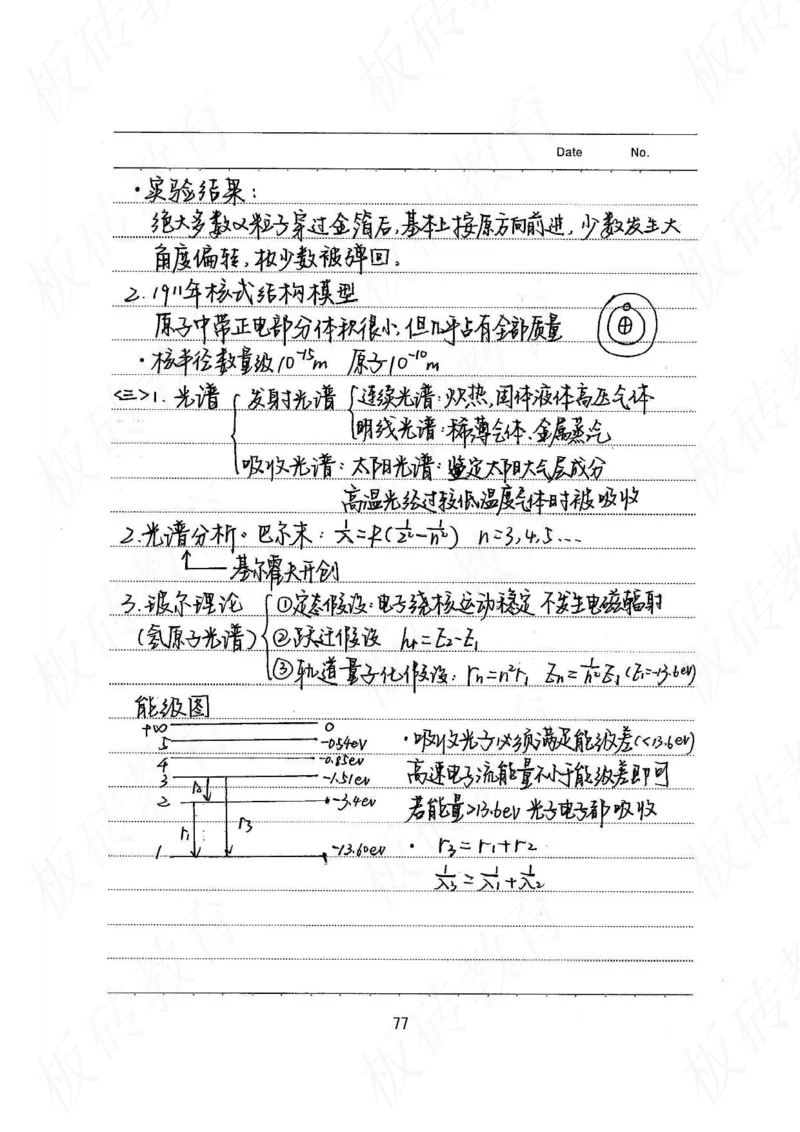 Date No.
·实验结果:
绝大多数α粒子穿过金箔后,基本上按原方向前进,少数发生大
角度偏转,极少数被弹回。
2.1911年核式结构模型
原子中带正电部分体积很小,但几乎占有全部质量
·核半径数量级10⁻¹⁵m 原子10⁻¹⁰m
<三>1.光谱 发射光谱 连续光谱:炽热,固体液体高压气体
明线光谱:稀薄气体、金属蒸气
吸收光谱:太阳光谱:鉴定太阳大气层成分
高温光经过较低温度气体时被吸收
2.光谱分析。巴尔末:1/λ=R(1/2²-1/n²) n=3,4,5...
基尔霍夫开创
3.玻尔理论 ①定态假设:电子绕核运动稳定 不发生电磁辐射
(氢原子光谱) ②跃迁假设 hν=E₂-E₁
③轨道量子化假设:rn=n²r₁ En=1/n²E₁(E₁=-13.6eV)
能级图
+∞ 0
5 -0.54eV
4 -0.85eV
3 -1.51eV
2 -3.4eV
1 -13.60eV
ν₁ ν₂ ν₃
·吸收光子必须满足能级差(<13.6eV)
高速电子流能量不小于能级差即可
若能量>13.6eV 光子电子都吸收
· ν₃=ν₁+ν₂
1/λ₃=1/λ₁+1/λ₂
77
板砖教育